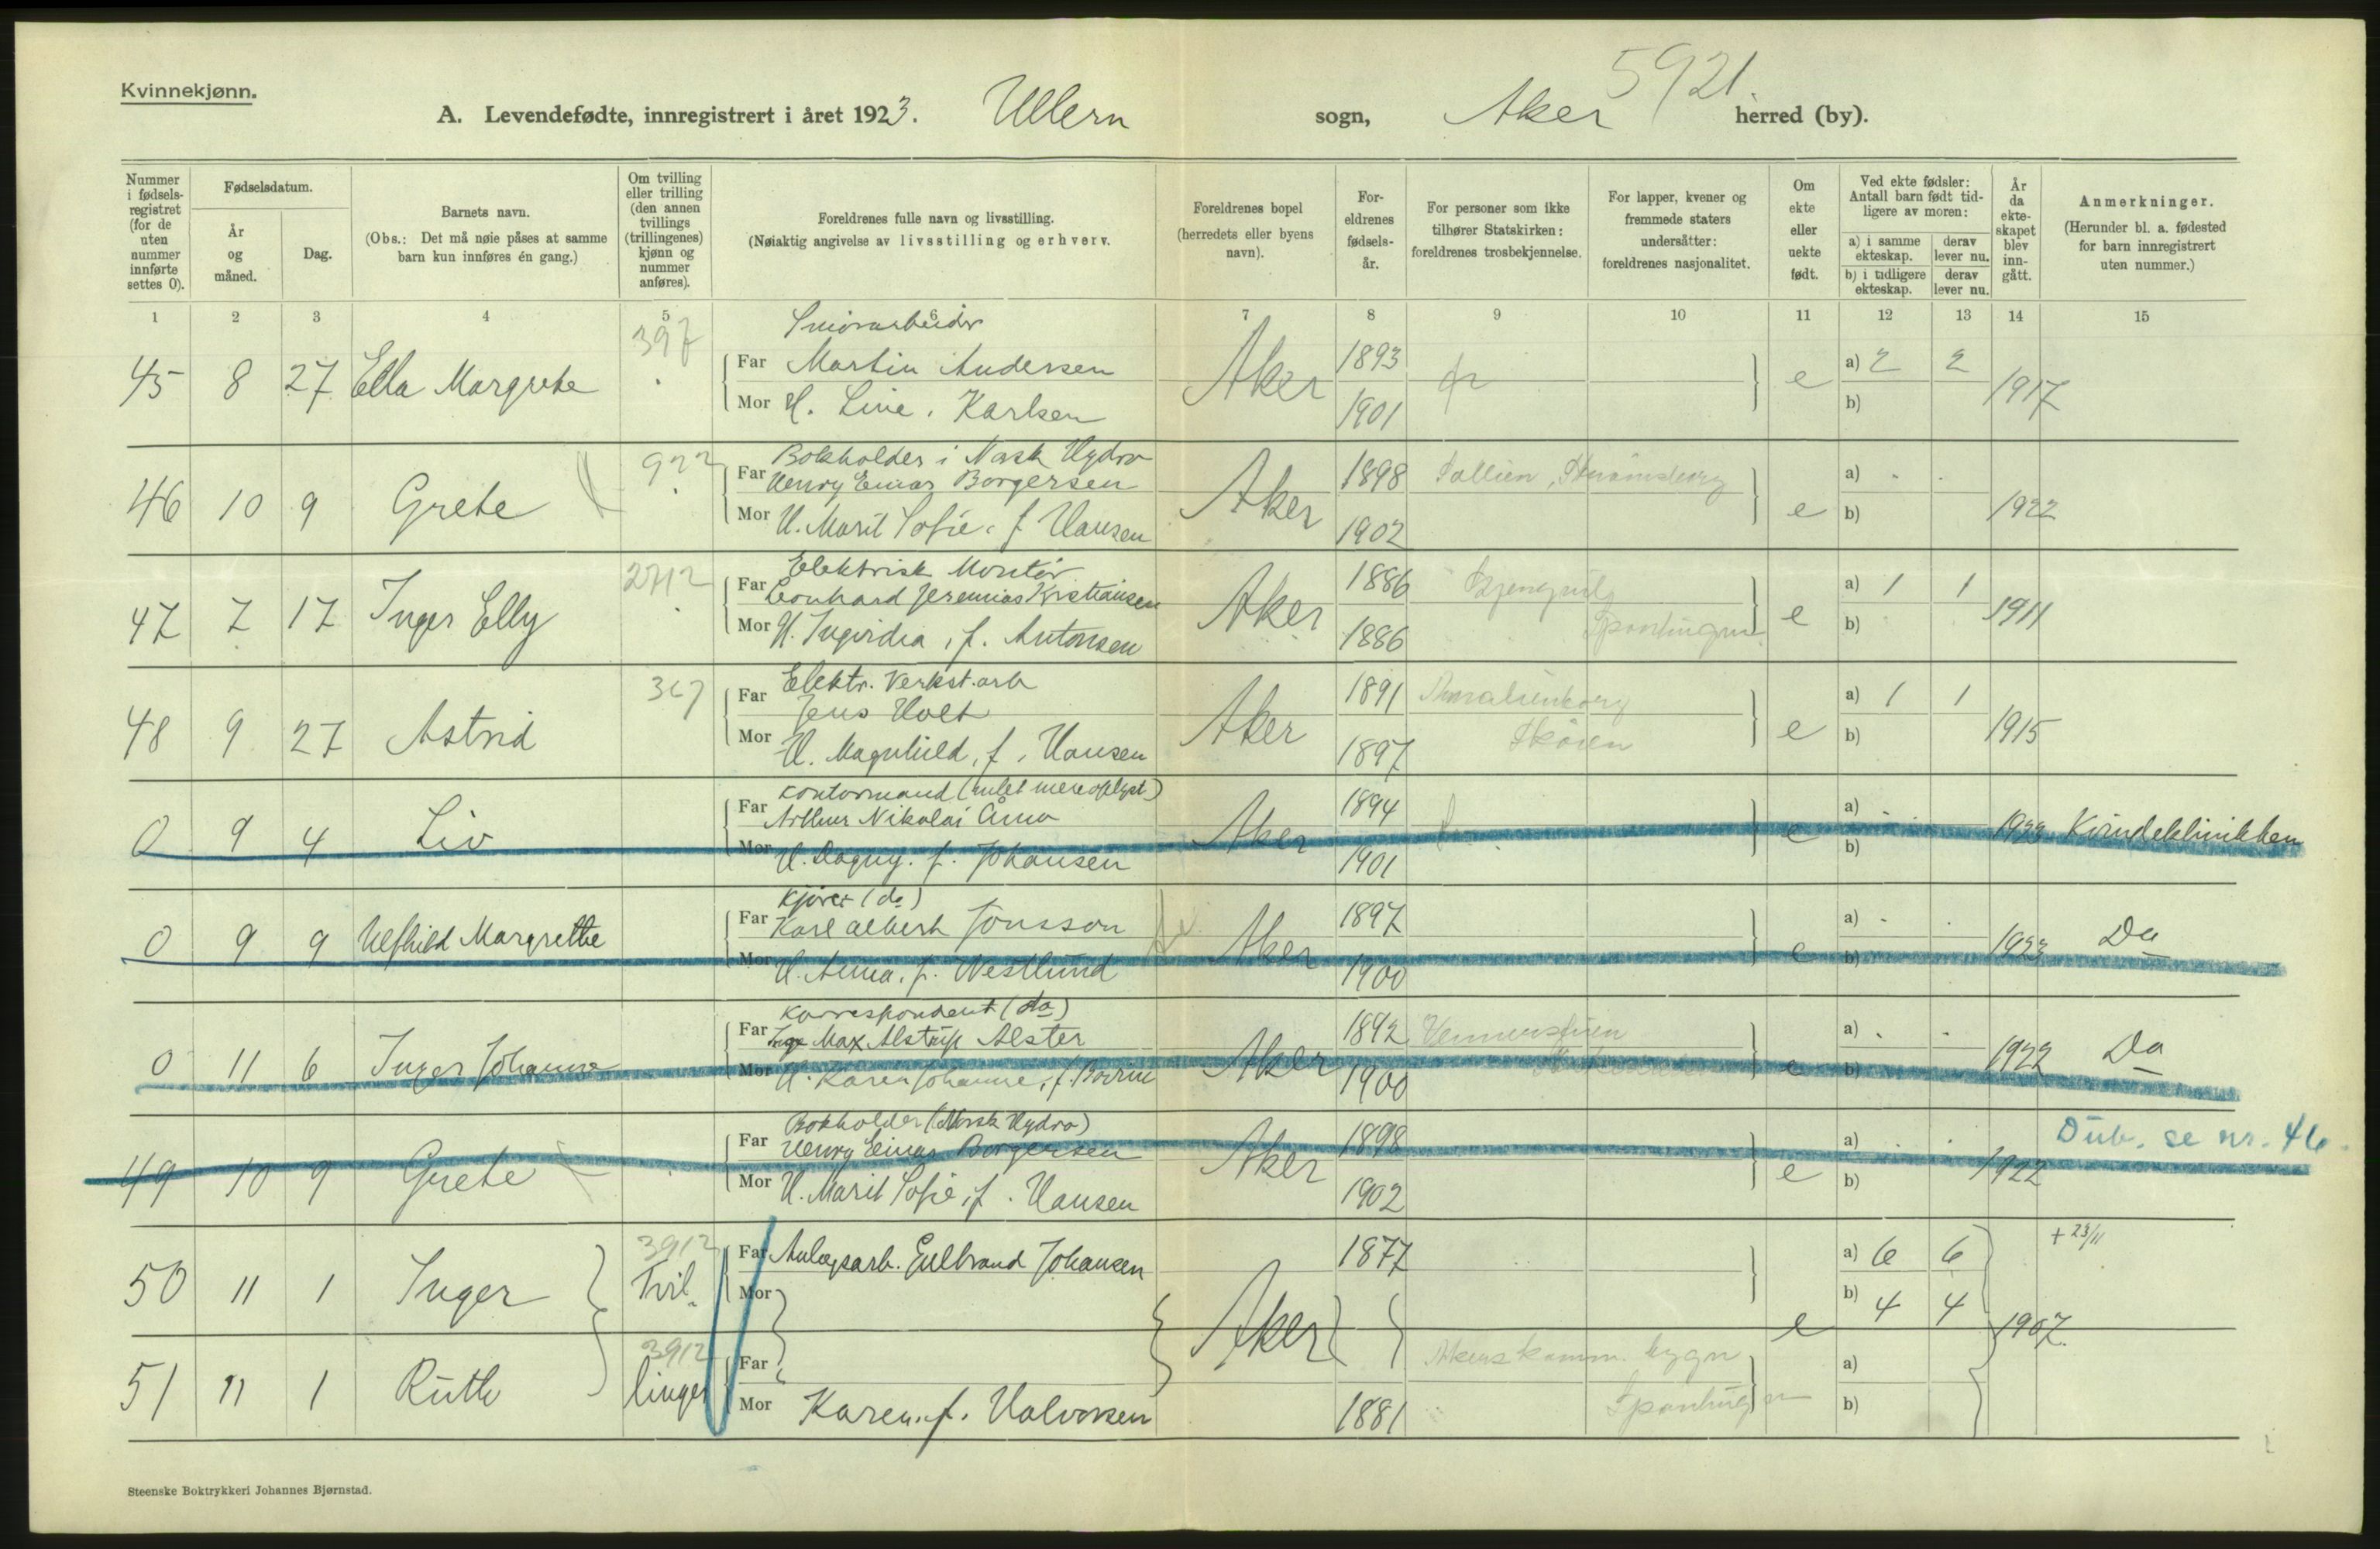 Kvinnekjønn.
5921.
A. Levendefødte, innregistrert i året 1923. Ullern sogn, Aker herred (by).
Nummer i fødsels-registret (for de uten nummer innførte settes 0).
Fødselsdatum.
År og måned.
Dag.
Barnets navn.
(Obs.: Det må nøie påses at samme barn kun innføres én gang.)
Om tvilling eller trilling (den annen tvillings (trillingenes) kjønn og nummer anføres).
Foreldrenes fulle navn og livsstilling.
(Nøiaktig angivelse av livsstilling og erhverv.
Foreldrenes bopel (herredets eller byens navn).
For-eldrenes fødsels-år.
For personer som ikke tilhører Statskirken: foreldrenes trosbekjennelse.
For lapper, kvener og fremmede staters undersåtter: foreldrenes nasjonalitet.
Om ekte eller uekte født.
Ved ekte fødsler: Antall barn født tid-ligere av moren:
a) i samme ekteskap.
derav lever nu.
b) i tidligere ekteskap.
derav lever nu.
År da ekte-skapet blev inn-gått.
Anmerkninger.
(Herunder bl. a. fødested for barn innregistrert uten nummer.)
1 2 3 4 5 6 7 8 9 10 11 12 13 14 15
397
45 8 27 Ella Margrethe Far Martin Andersen Aker 1893 e a) 2 2 1917
Mor H. Line. Karlsen 1901 b)
Bokholder i Norsk Hydro
46 10 9 Grete Far Henry Einar Borgersen Aker 1898 e a) . . 1922
Mor H. Marit Sofie. f. Hansen 1902 b)
2712 Elektrisk Montør
47 7 17 Inger Elly Far Leonhard Jeremias Kristiansen Aker 1886 e a) 1 1 1911
Mor H. Ingvidia, f. Antonsen 1886 b)
367 Elektr. Verkst.arb
48 9 27 Astrid Far Jens Holt Aker 1891 Amalienborg e a) 1 1 1915
Mor H. Magnhild, f. Hansen 1897 Skøien b)
Kontormand (intet mere oplyst)
0 9 4 Liv Far Arthur Nikolai Aker 1894 e a) . . 1923 Kvindeklinikken
Mor H. Dagny. f. Johansen 1901 b)
Kjører (do)
0 9 9 Ulfhild Margrethe Far Karl Albert Jonsson Aker 1897 e a) . . 1923 Do
Mor H. Anna. f. Westlund 1900 b)
Korrespondent (do)
0 11 6 Inger Johanne Far Max Alstrup Alster Aker 1892 e a) . . 1922 Do
Mor H. Karen Johanne, f. 1900 b)
Bokholder (Norsk Hydro)
49 10 9 Grete Far Henry Einar Borgersen Aker 1898 e a) . . 1922 Dub. se nr. 46.
Mor H. Marit Sofie, f. Hansen 1902 b)
3912
50 11 1 Inger Tvil- Far Anlægsarb. Gulbrand Johansen Aker 1877 e a) 6 6 1907. + 23/11
Mor b) 4 4
3912
51 11 1 Ruth linger Far a)
Mor Karen. f. Halvorsen 1881 b)
Steenske Boktrykkeri Johannes Bjørnstad.